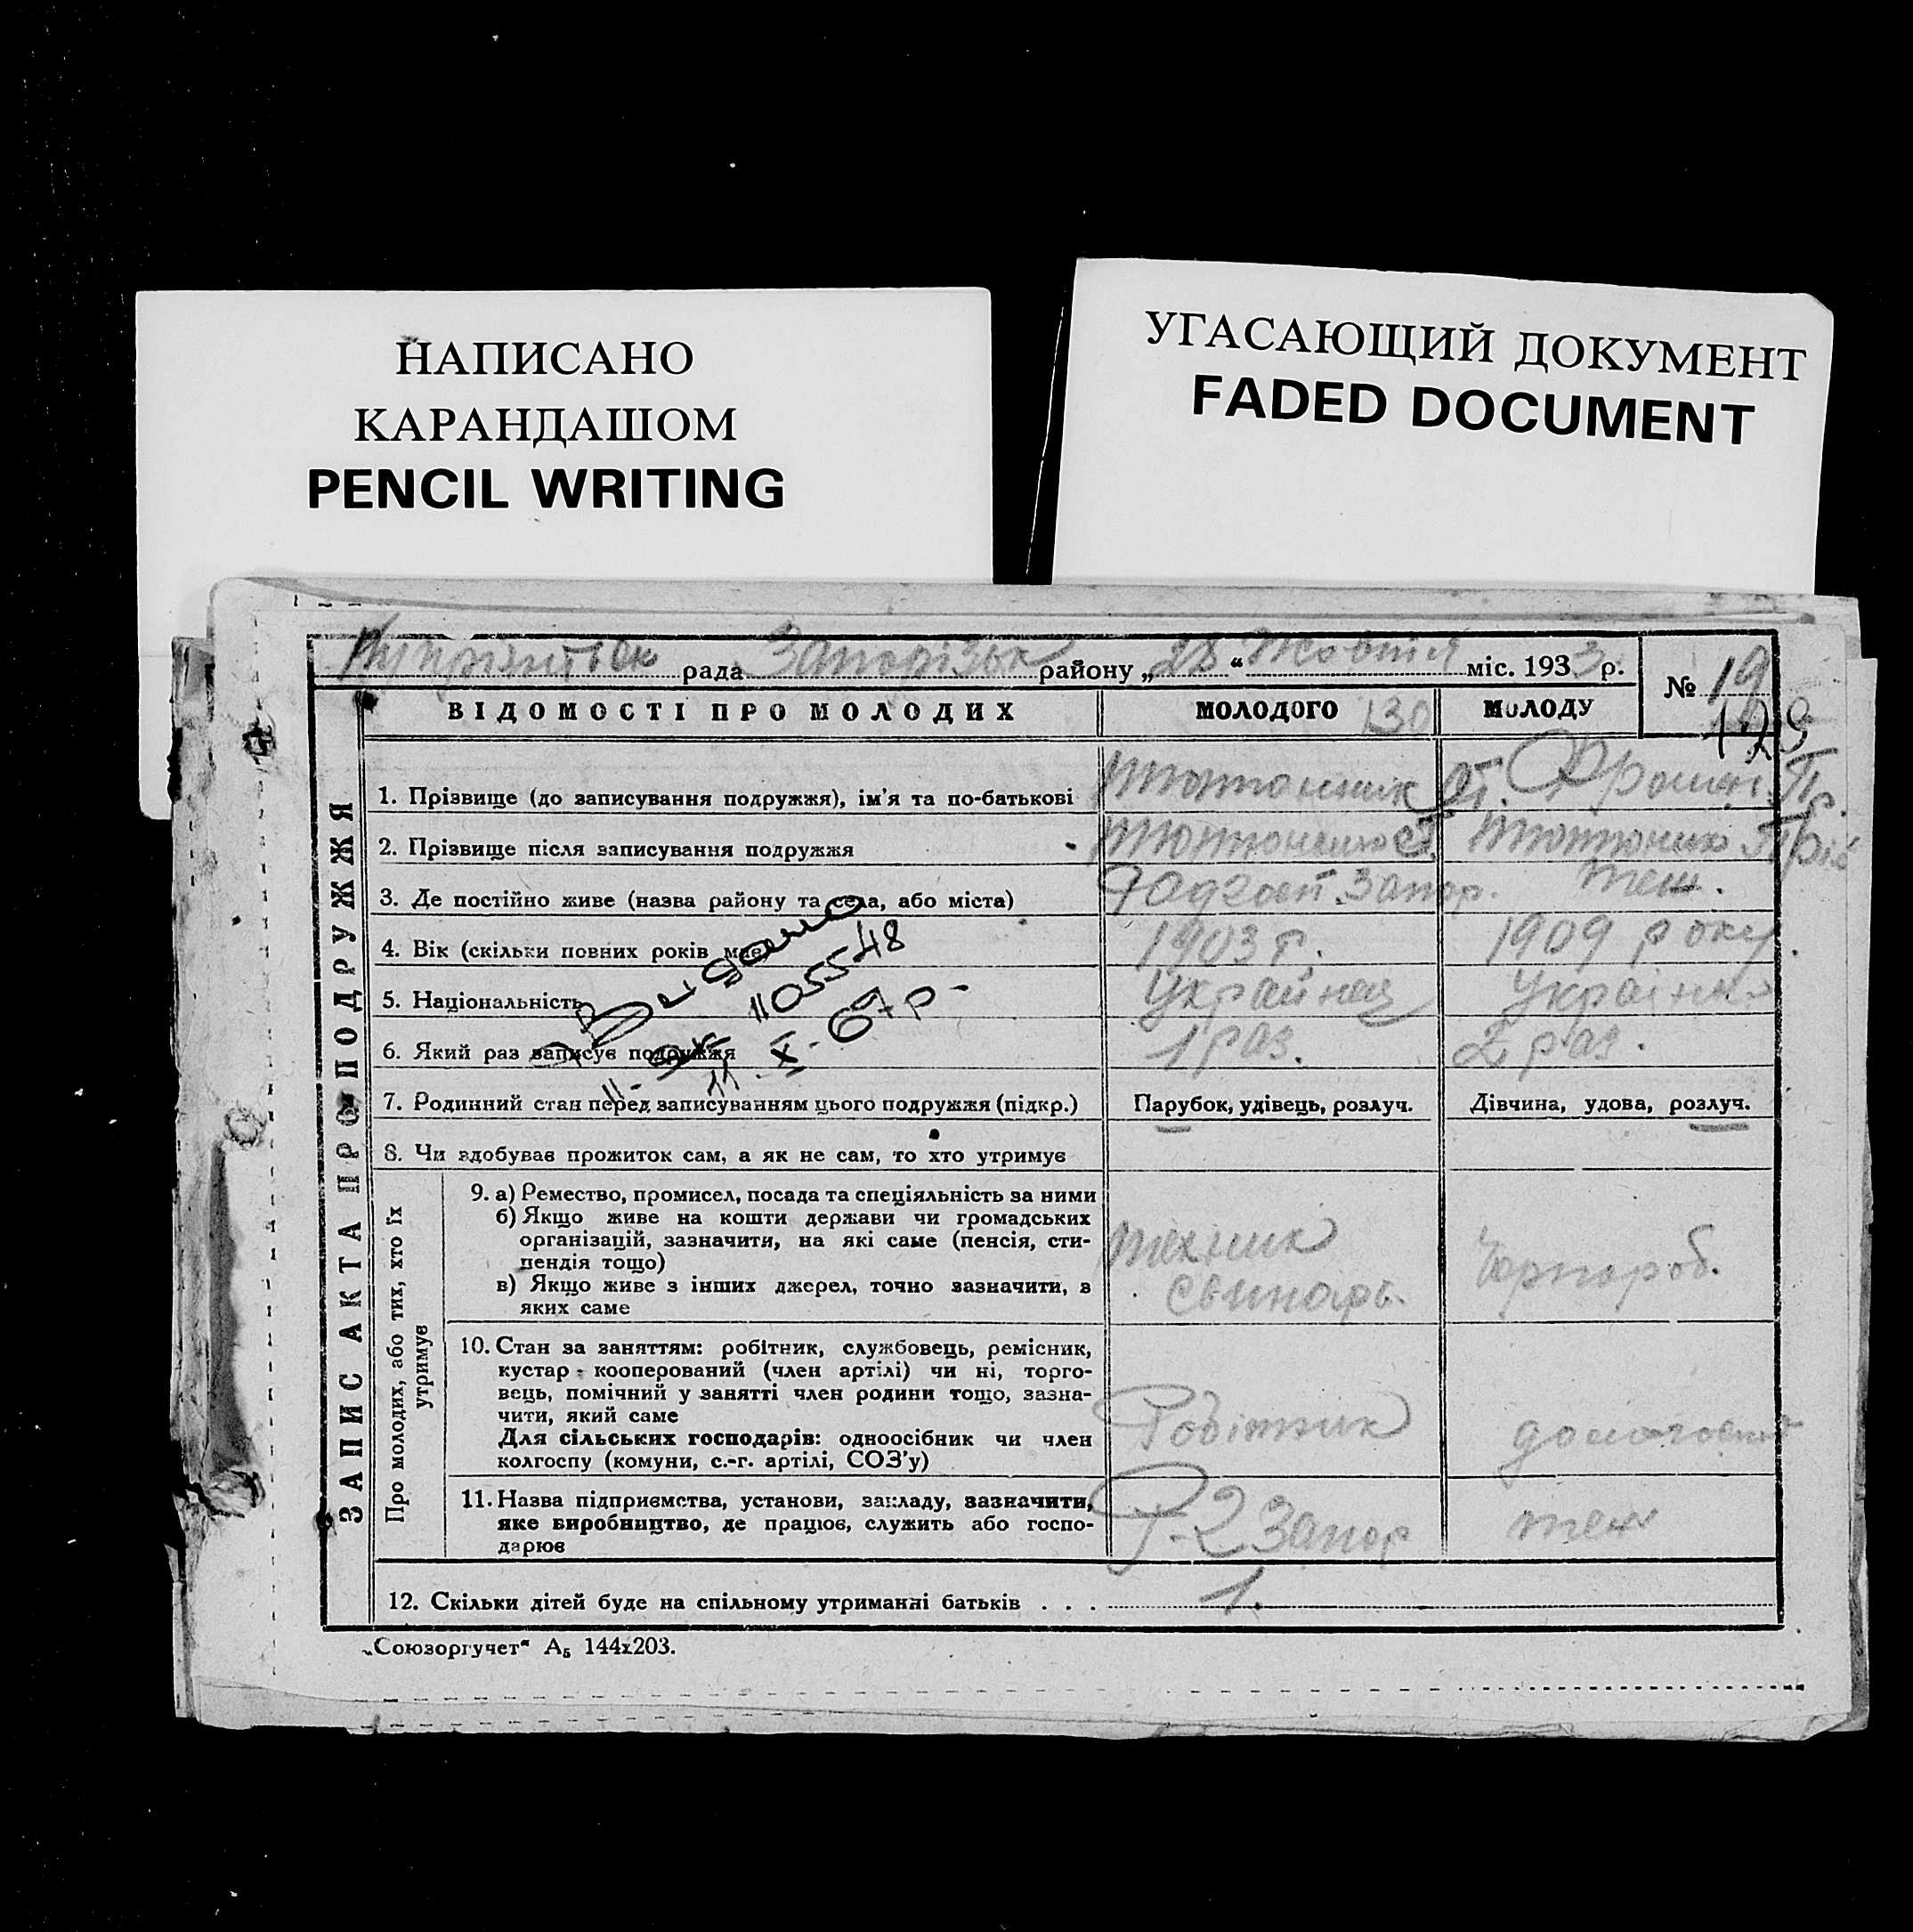 НАПИСАНО
КАРАНДАШОМ
PENCIL WRITING
УГАСАЮЩИЙ ДОКУМЕНТ
FADED DOCUMENT
рада Запорізьк району „28“ Жовтня міс. 1933 р.
№ 19
ВІДОМОСТІ ПРО МОЛОДИХ
МОЛОДОГО 130
МОЛОДУ
ЗАПИС АКТА ПРО ПОДРУЖЖЯ
1. Прізвище (до записування подружжя), ім'я та по-батькові
2. Прізвище після записування подружжя
3. Де постійно живе (назва району та села, або міста) Запор. теж.
4. Вік (скільки повних років має) 1903 г. 1909 року.
5. Національність
Видано
1105548
11. X. 67 р.
6. Який раз записує подружжя 1 раз. 2 раз.
7. Родинний стан перед записуванням цього подружжя (підкр.) Парубок, удівець, розлуч. Дівчина, удова, розлуч.
8. Чи здобуває прожиток сам, а як не сам, то хто утримує
Про молодих, або тих, хто їх
утримує
9. а) Ремество, промисел, посада та спеціяльність за ними
б) Якщо живе на кошти держави чи громадських
організацій, зазначити, на які саме (пенсія, сти-
пендія тощо)
в) Якщо живе з інших джерел, точно зазначити, з
яких саме
техник
свинарь.
Чорнороб.
10. Стан за заняттям: робітник, службовець, ремісник,
кустар - кооперований (член артілі) чи ні, торго-
вець, помічний у занятті член родини тощо, зазна-
чити, який саме
Для сільських господарів: одноосібник чи член
колгоспу (комуни, с.-г. артілі, СОЗ'у)
Робітник
11. Назва підприємства, установи, закладу, зазначити,
яке виробництво, де працює, служить або госпо-
дарює
Р-2 Запор
теж
12. Скільки дітей буде на спільному утриманні батьків . . . 1.
„Союзоргучет“ А₅ 144х203.